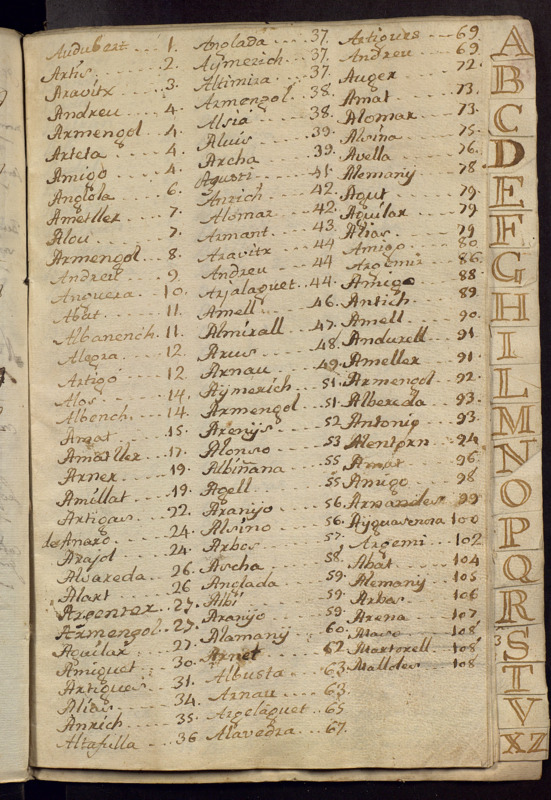 Audubert 1.
Artís 2.
Aravitx 3.
Andreu 4.
Armengol 4.
Arteta 4.
Amigo 4.
Anglola 6.
Ametller 7.
Alou 7.
Armengol 8.
Andreu 9.
Anguera 10.
Abat 11.
Albanench 11.
Alegra 12.
Artigó 12
Alos 14.
Albench 14.
Amat 15.
Amatller 17.
Arner 19.
Amillat 19.
Artigas 22.
Anaro 24.
Arajol 24.
Alsareda 26.
Alart 26
Argenter 27.
Armengol 27.
Aguilar 27.
Amiguet 30.
Artigues 31.
Alias 34.
Anrich 35.
Altafulla 36
Anglada 37.
Aymerich 37.
Altimira 37.
Armengol 38.
Alsia 38.
Aluis 39.
Archa 39.
Agusti 41.
Anrich 42.
Alomar 42.
Armant 43.
Aravitx 44
Andreu 44
Arjalaguet 44.
Amell 46.
Almirall 47.
Arus 48.
Arnau 49.
Aymerich 51.
Armengol 51.
Arenys 52
Alonso 53
Albiñana 55
Agell 55
Aranyo 56
Alsino 56
Arbos 57
Ascha 58
Anglada 59
Albi 59
Aranyo 59
Alamany 60
Arnet 62
Albusta 63
Arnau 63.
Argelaguet 65
Alavedra 67.
Artigues 69
Andreu 69
Auger 72
Amat 73.
Alomar 73.
Alsina 75
Avella 76.
Alemany 78
Agut 79.
Aguilar 79
Alias 79
Amigo 80
Argemir 86
Amigo 88
Antich 89
Amell 90.
Andurell 91.
Ameller 91.
Armengol 92.
Albereda 93.
Antonig 93.
Alentorn 94
Amat 96
Amigo 98
Arnandes 99
Ayguasenosa 100
Argemi 102
Abat 104
Alemany 105
Arbas 106
Arena 107
Maso 108
Martorell 108
Malldes 108
A
B
C
D
E
F
G
H
I
L
M
N
O
P
Q
R
S
T
V
XZ